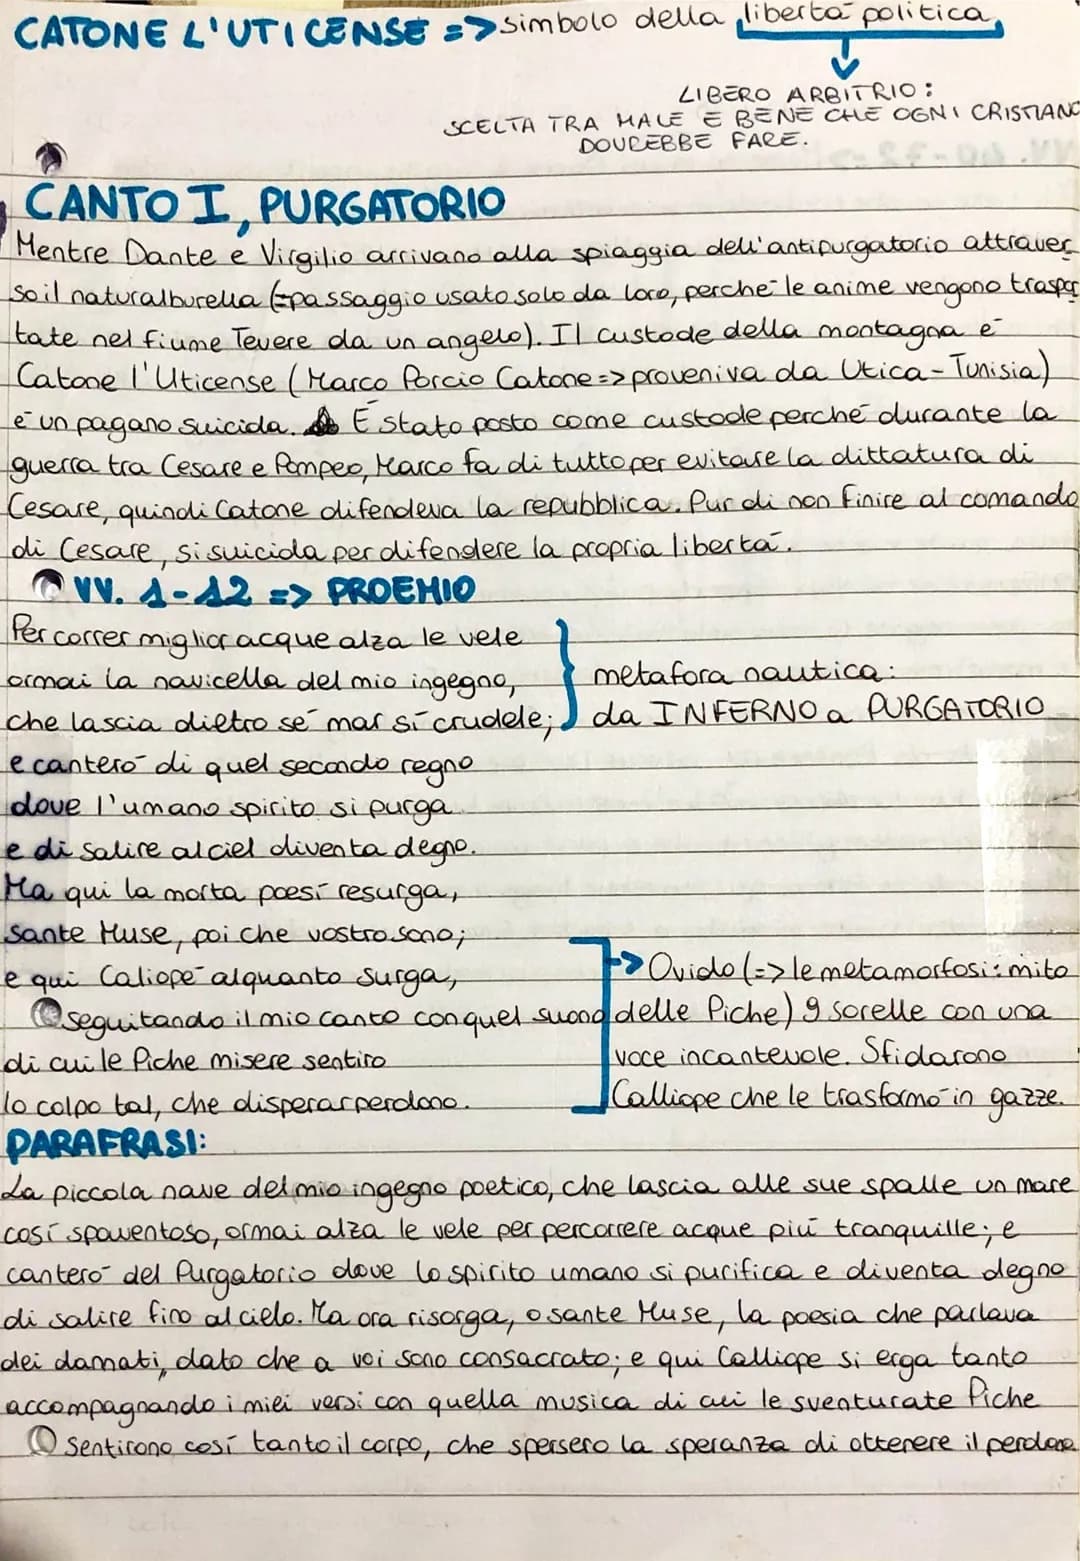 CATONE L'UTICENSE => simbolo della libertà politica,
LIBERO ARBITRIO:
SCELTA TRA MALE E BENE CHE OGNI CRISTIANO
DOVREBBE FARE.
CANTO I, PURGATORIO
Mentre Dante e Virgilio arrivano alla spiaggia dell'antipurgatorio attraver
so il natural burella (=passaggio usato solo da loro, perché le anime vengono traspor
tate nel fiume Tevere da un angelo). Il custode della montagna è
Catone l'Uticense (Marco Porcio Catone => proveniva da Utica - Tunisia)
è un pagano suicida. È stato posto come custode perché durante la
guerra tra Cesare e Pompeo, Marco fa di tutto per evitare la dittatura di
Cesare, quindi Catone difendeva la repubblica. Pur di non finire al comando
di Cesare, si suicida per difendere la propria libertà.
VV. 1-12 => PROEMIO
Per correr miglior acque alza le vele
ormai la navicella del mio ingegno,
che lascia dietro sé mar sì crudele;
metafora nautica:
da INFERNO a PURGATORIO
e canterò di quel secondo regno
dove l'umano spirito si purga
e di salire al ciel diventa degno.
Ma qui la morta poesì resurga,
sante Muse, poi che vostro sono;
e qui Caliopè alquanto surga,
seguitando il mio canto con quel suono
di cui le Piche misere sentiro
lo colpo tal, che disperar perdono.
-> Ovidio (=> le metamorfosi: mito
delle Piche) 9 sorelle con una
voce incantevole. Sfidarono
Calliope che le trasformò in gazze.
PARAFRASI:
La piccola nave del mio ingegno poetico, che lascia alle sue spalle un mare
così spaventoso, ormai alza le vele per percorrere acque più tranquille; e
canterò del Purgatorio dove lo spirito umano si purifica e diventa degno
di salire fino al cielo. Ma ora risorga, o sante Muse, la poesia che parlava
dei dannati, dato che a voi sono consacrato; e qui Calliope si erga tanto
accompagnando i miei versi con quella musica di cui le sventurate Piche
sentirono così tanto il corpo, che spersero la speranza di ottenere il perdono